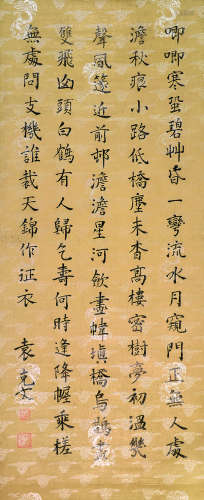 唧唧寒蛩碧艸昏一彎流水月窺門正無人處
澹秋痕小路低橋塵未杳高樓密樹夢初溫幾
聲風篴近前邨澹澹星河欲畫幃填橋烏鵲
雙飛頭白鶴有人歸乞壽何時逢降幄乘槎
無處問支機誰裁天錦作征衣
袁克文